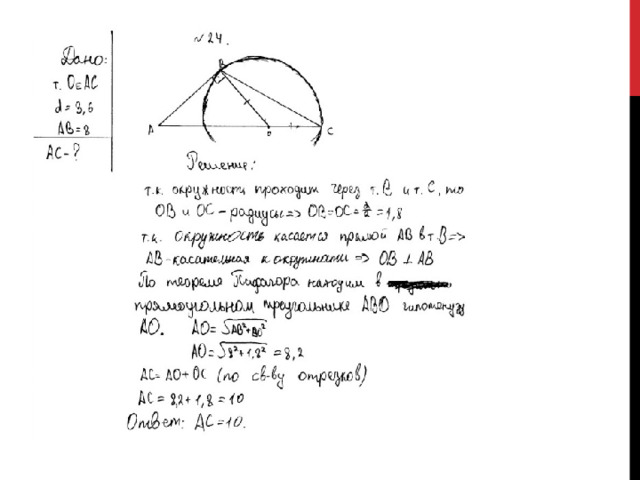 № 24.
Дано:
т. O∈AC
d = 3,6
AB = 8
AC - ?
B
A
O
C
Решение:
т.к. окружность проходит через т. B и т. C, то
OB и OC - радиусы => OB=OC= d/2 = 1,8
т.к. окружность касается прямой AB в т. B =>
AB - касательная к окружности => OB ⊥ AB
По теореме Пифагора находим в
прямоугольном треугольнике ABO гипотенузу
AO. AO= √AB²+BO²
AO= √8²+1,8² = 8,2
AC= AO + OC (по св-ву отрезков)
AC = 8,2 + 1,8 = 10
Ответ: AC=10.